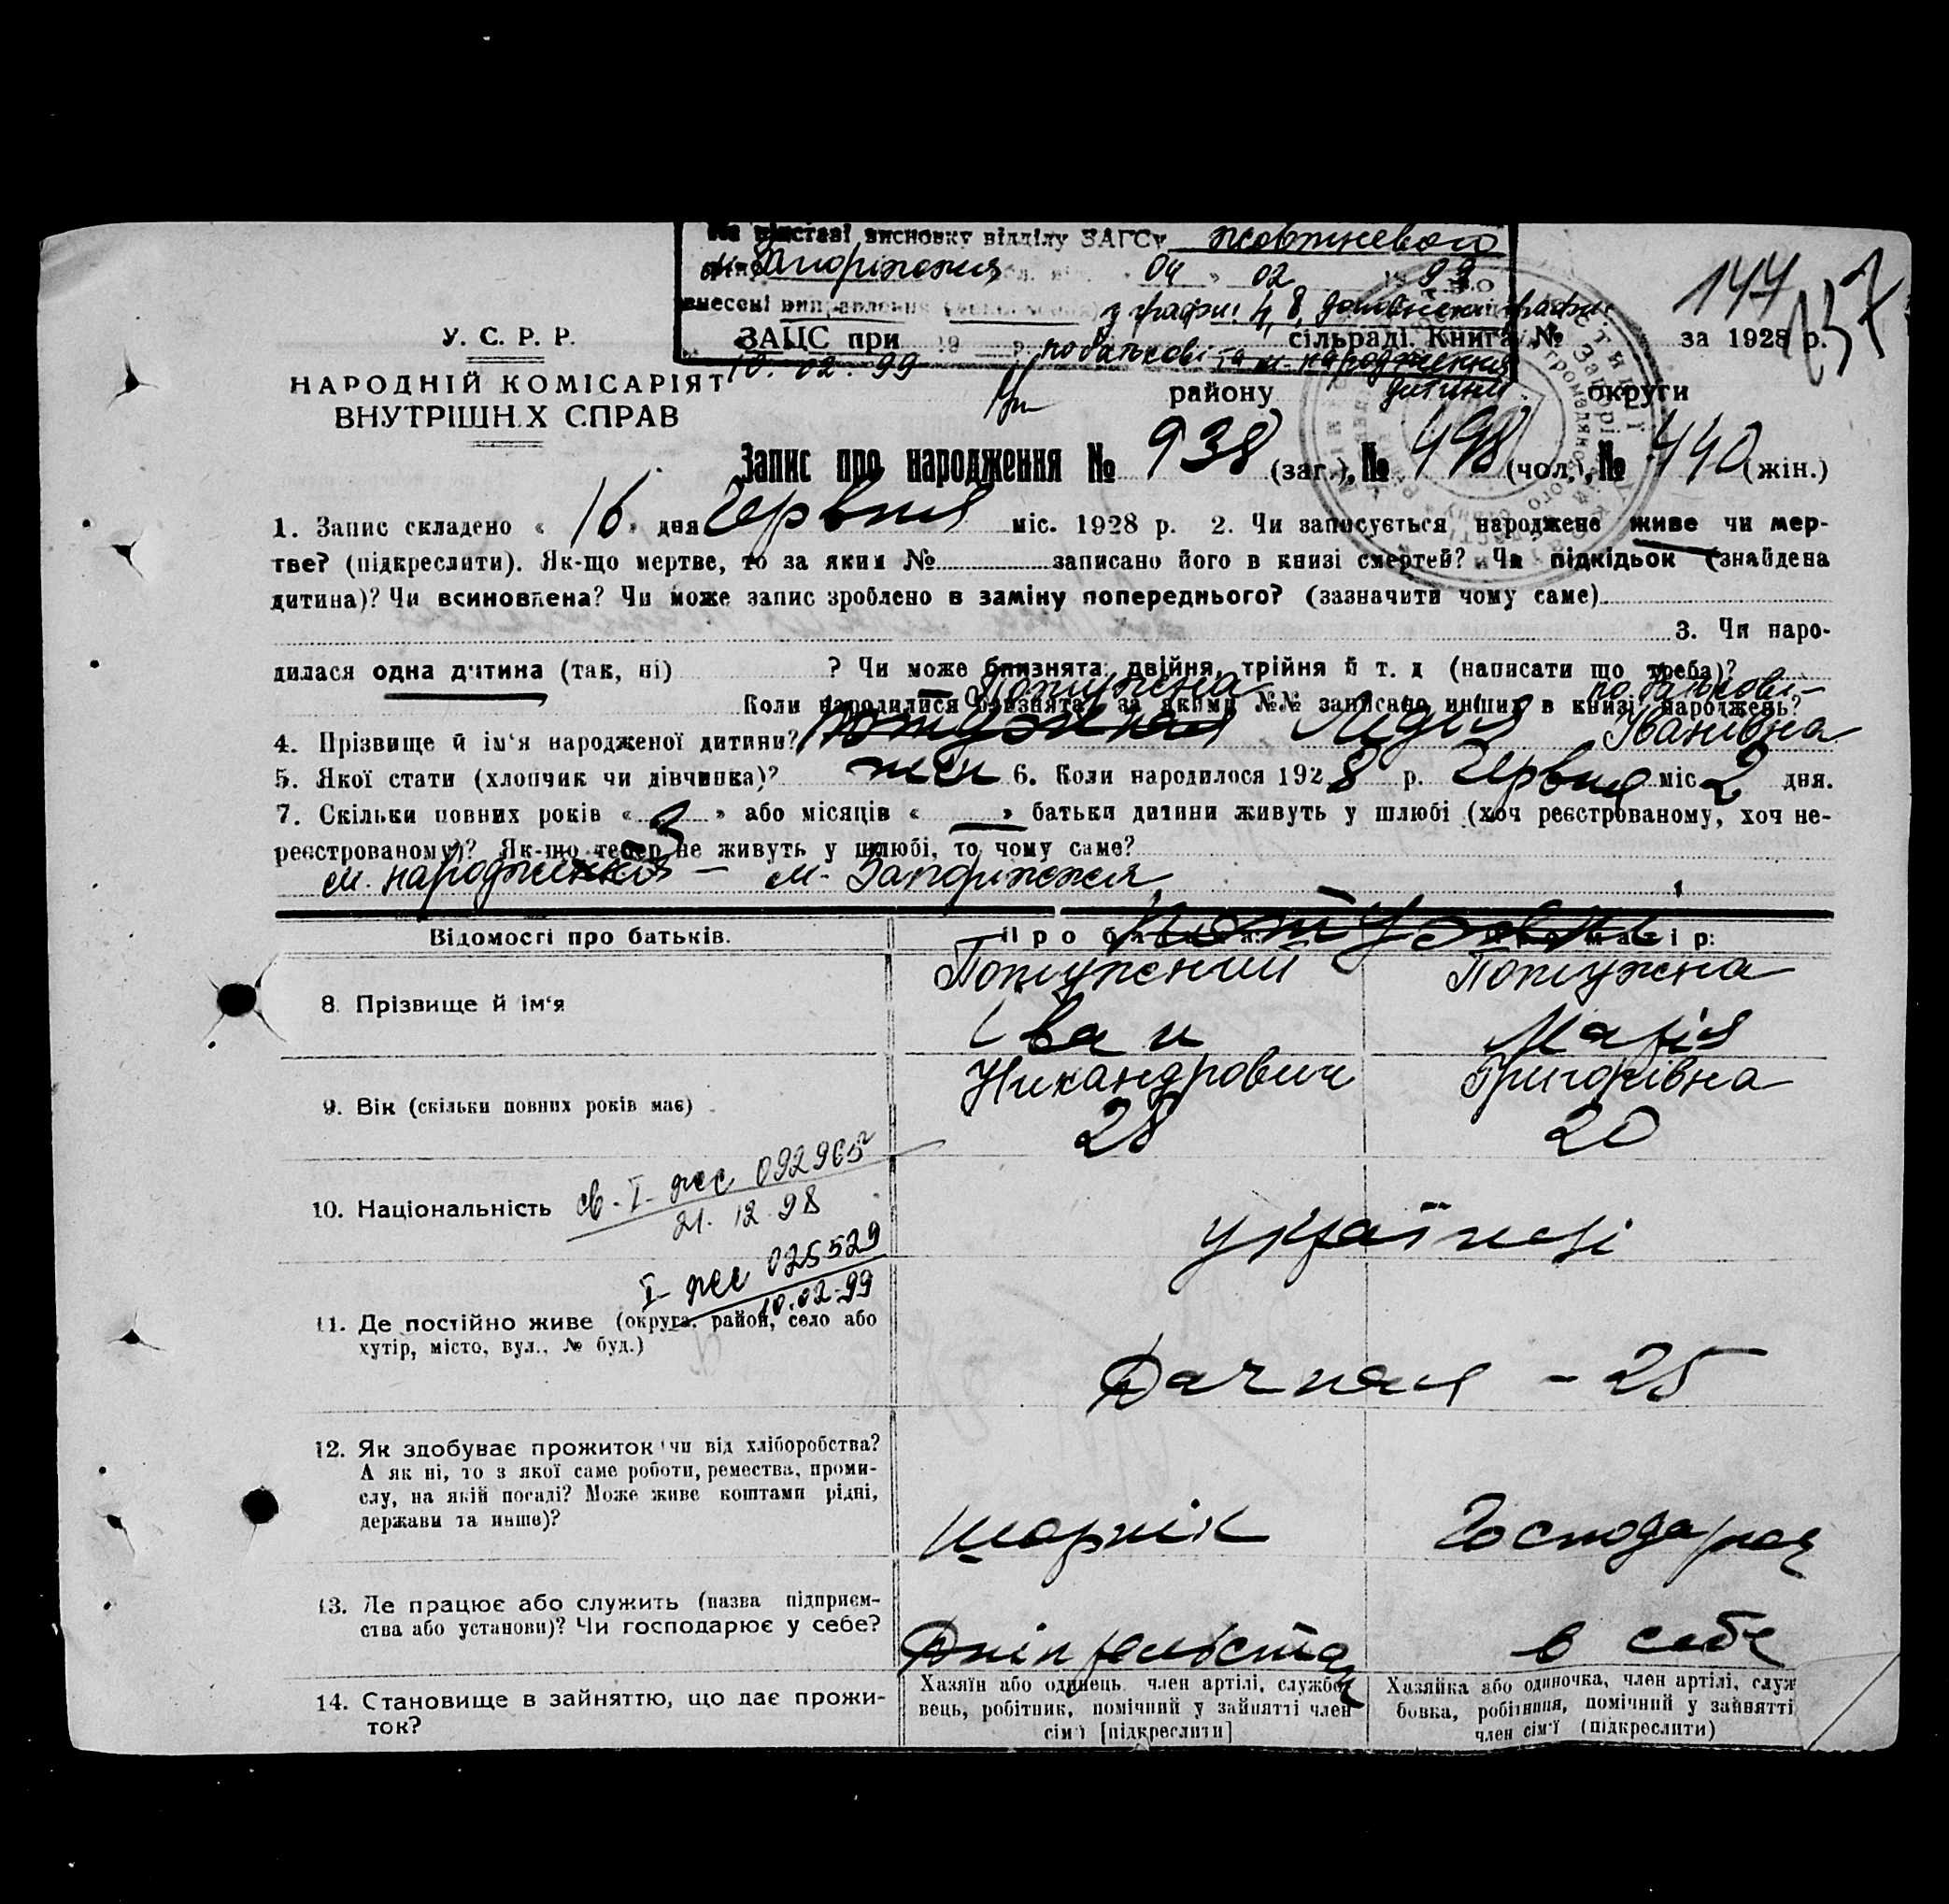 На підставі висновку відділу ЗАГСу Жовтневого
Запоріжжя 04 02 1999
внесені виправлення у графи: 4, 8, доповнені графи:
по батькові та м. народження
дитини
10.02.99
147
137
У. С. Р. Р.
НАРОДНІЙ КОМІСАРІЯТ
ВНУТРІШН.Х СПРАВ
ЗАЦС при сільраді. Книга № за 1928 р.
району округи
Запис про народження № 938 (заг.), № 498 (чол.), № 440 (жін.)
1. Запис складено « 16 » дня Червня міс. 1928 р. 2. Чи записується народжене живе чи мер-
тве? (підкреслити). Як-що мертве, то за яким № записано його в книзі смертей? Чи підкідьок (знайдена
дитина)? Чи всиновлена? Чи може запис зроблено в заміну попереднього? (зазначити чому саме)
3. Чи наро-
дилася одна дитина (так, ні) ? Чи може близнята: двійня, трійня й т. д (написати що треба)?
Коли народилися близнята, за якими №№ записано инших в книзі народжень?
Потужна по батькові —
4. Прізвище й ім'я народженої дитини? Потужная Лідия Іванівна
5. Якої стати (хлопчик чи дівчинка)? жін 6. Коли народилося 1928 р. Червня міс 2 дня.
7. Скільки повних років « 3 » або місяців « — » батьки дитини живуть у шлюбі (хоч реєстрованому, хоч не-
реєстрованому)? Як-що тепер не живуть у шлюбі, то чому саме?
м. народження — м. Запоріжжя,
Відомості про батьків. Про батька: Про матір:
8. Прізвище й ім'я
Потужний Потужна
Іван Марія
Никандрович Григорівна
9. Вік (скільки повних років має)
28 20
св. I-жс 092965
21.12.98
10. Національність
українці
I-жс 025529
10.02.99
11. Де постійно живе (округа, район, село або
хутір, місто, вул., № буд.)
Дачная - 25
12. Як здобуває прожиток чи від хліборобства?
А як ні, то з якої саме роботи, ремества, проми-
слу, на якій посаді? Може живе коштами рідні,
держави та инше)?
шорнік Господарка
13. Де працює або служить (назва підприєм-
ства або установи)? Чи господарює у себе?
в себе
14. Становище в зайняттю, що дає прожи-
ток?
Хазяїн або одинець член артілі, службо-
вець, робітник, помічний у зайнятті член
сім'ї [підкреслити]
Хазяйка або одиночка, член артілі, служ
бовка, робітниця, помічний у зайнятті
член сім'ї (підкреслити)